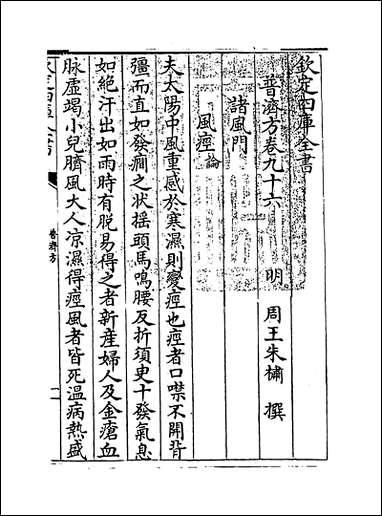 欽定四庫全書
普濟方卷九十六
明 周王朱橚 撰
諸風門
風痙論
夫太陽中風重感於寒濕則變痙也痙者口噤不開背
彊而直如發癇之狀揺頭馬鳴腰反折須㬰十發氣息
如絶汗出如雨時有脱易得之者新産婦人及金瘡血
脉虚竭小兒臍風大人凉濕得痙風者皆死温病熱盛
普濟方
一